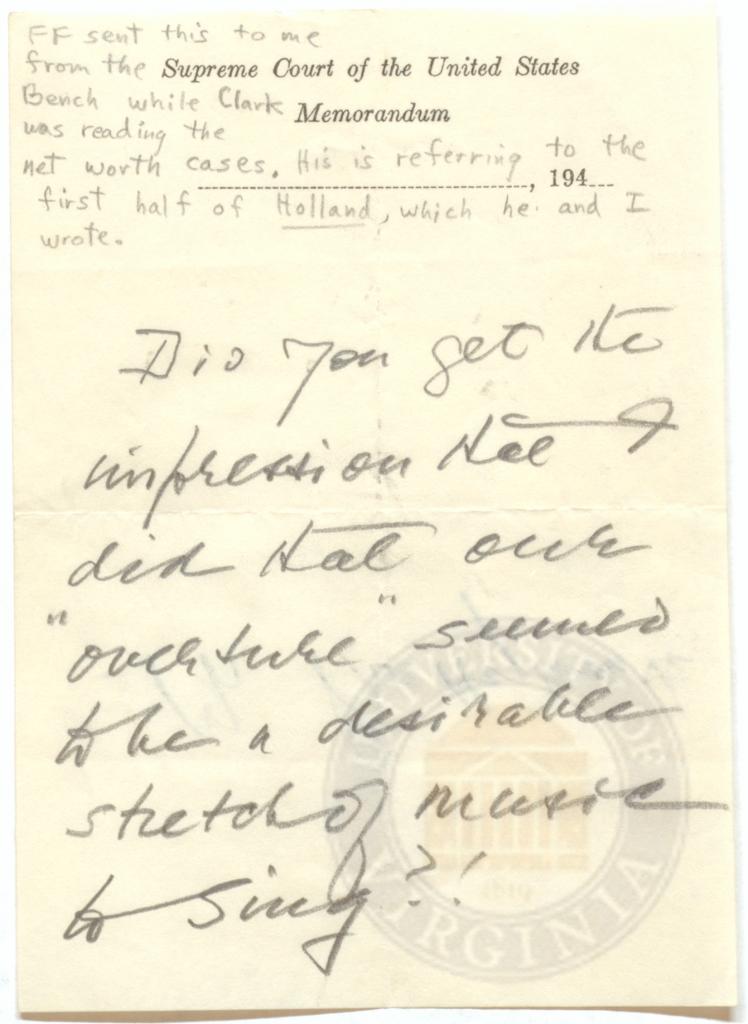 FF sent this to me
from the Supreme Court of the United States
Bench while Clark Memorandum
was reading the
net worth cases. His is referring to the
, 194
first half of Holland, which he and I
wrote.
Did you get the
impression that I
did that our
"overture" seemed
to be a desirable
stretch of music
to sing?!
UNIVERSITY OF
VIRGINIA
1819